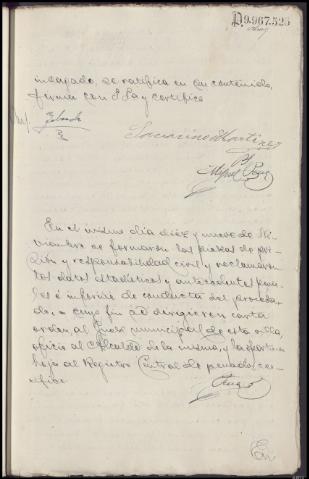 D.9.967.525
inculpado se ratifica en su contenido,
firma con S. Sa y certifico
Saturnino Martinez
Miguel
En el mismo dia diez y nueve de No-
viembre se formaron las piezas de pri-
sión y responsabilidad civil y reclamaron
los datos estadisticos y antecedentes pena-
les é informe de conducta del procesa-
do, a cuyo fin se dirigieron carta
orden al Juez municipal de esta villa,
oficio al Alcalde de la misma, y la oportuna
hoja al Registro Central de penados, cer-
tifico
En